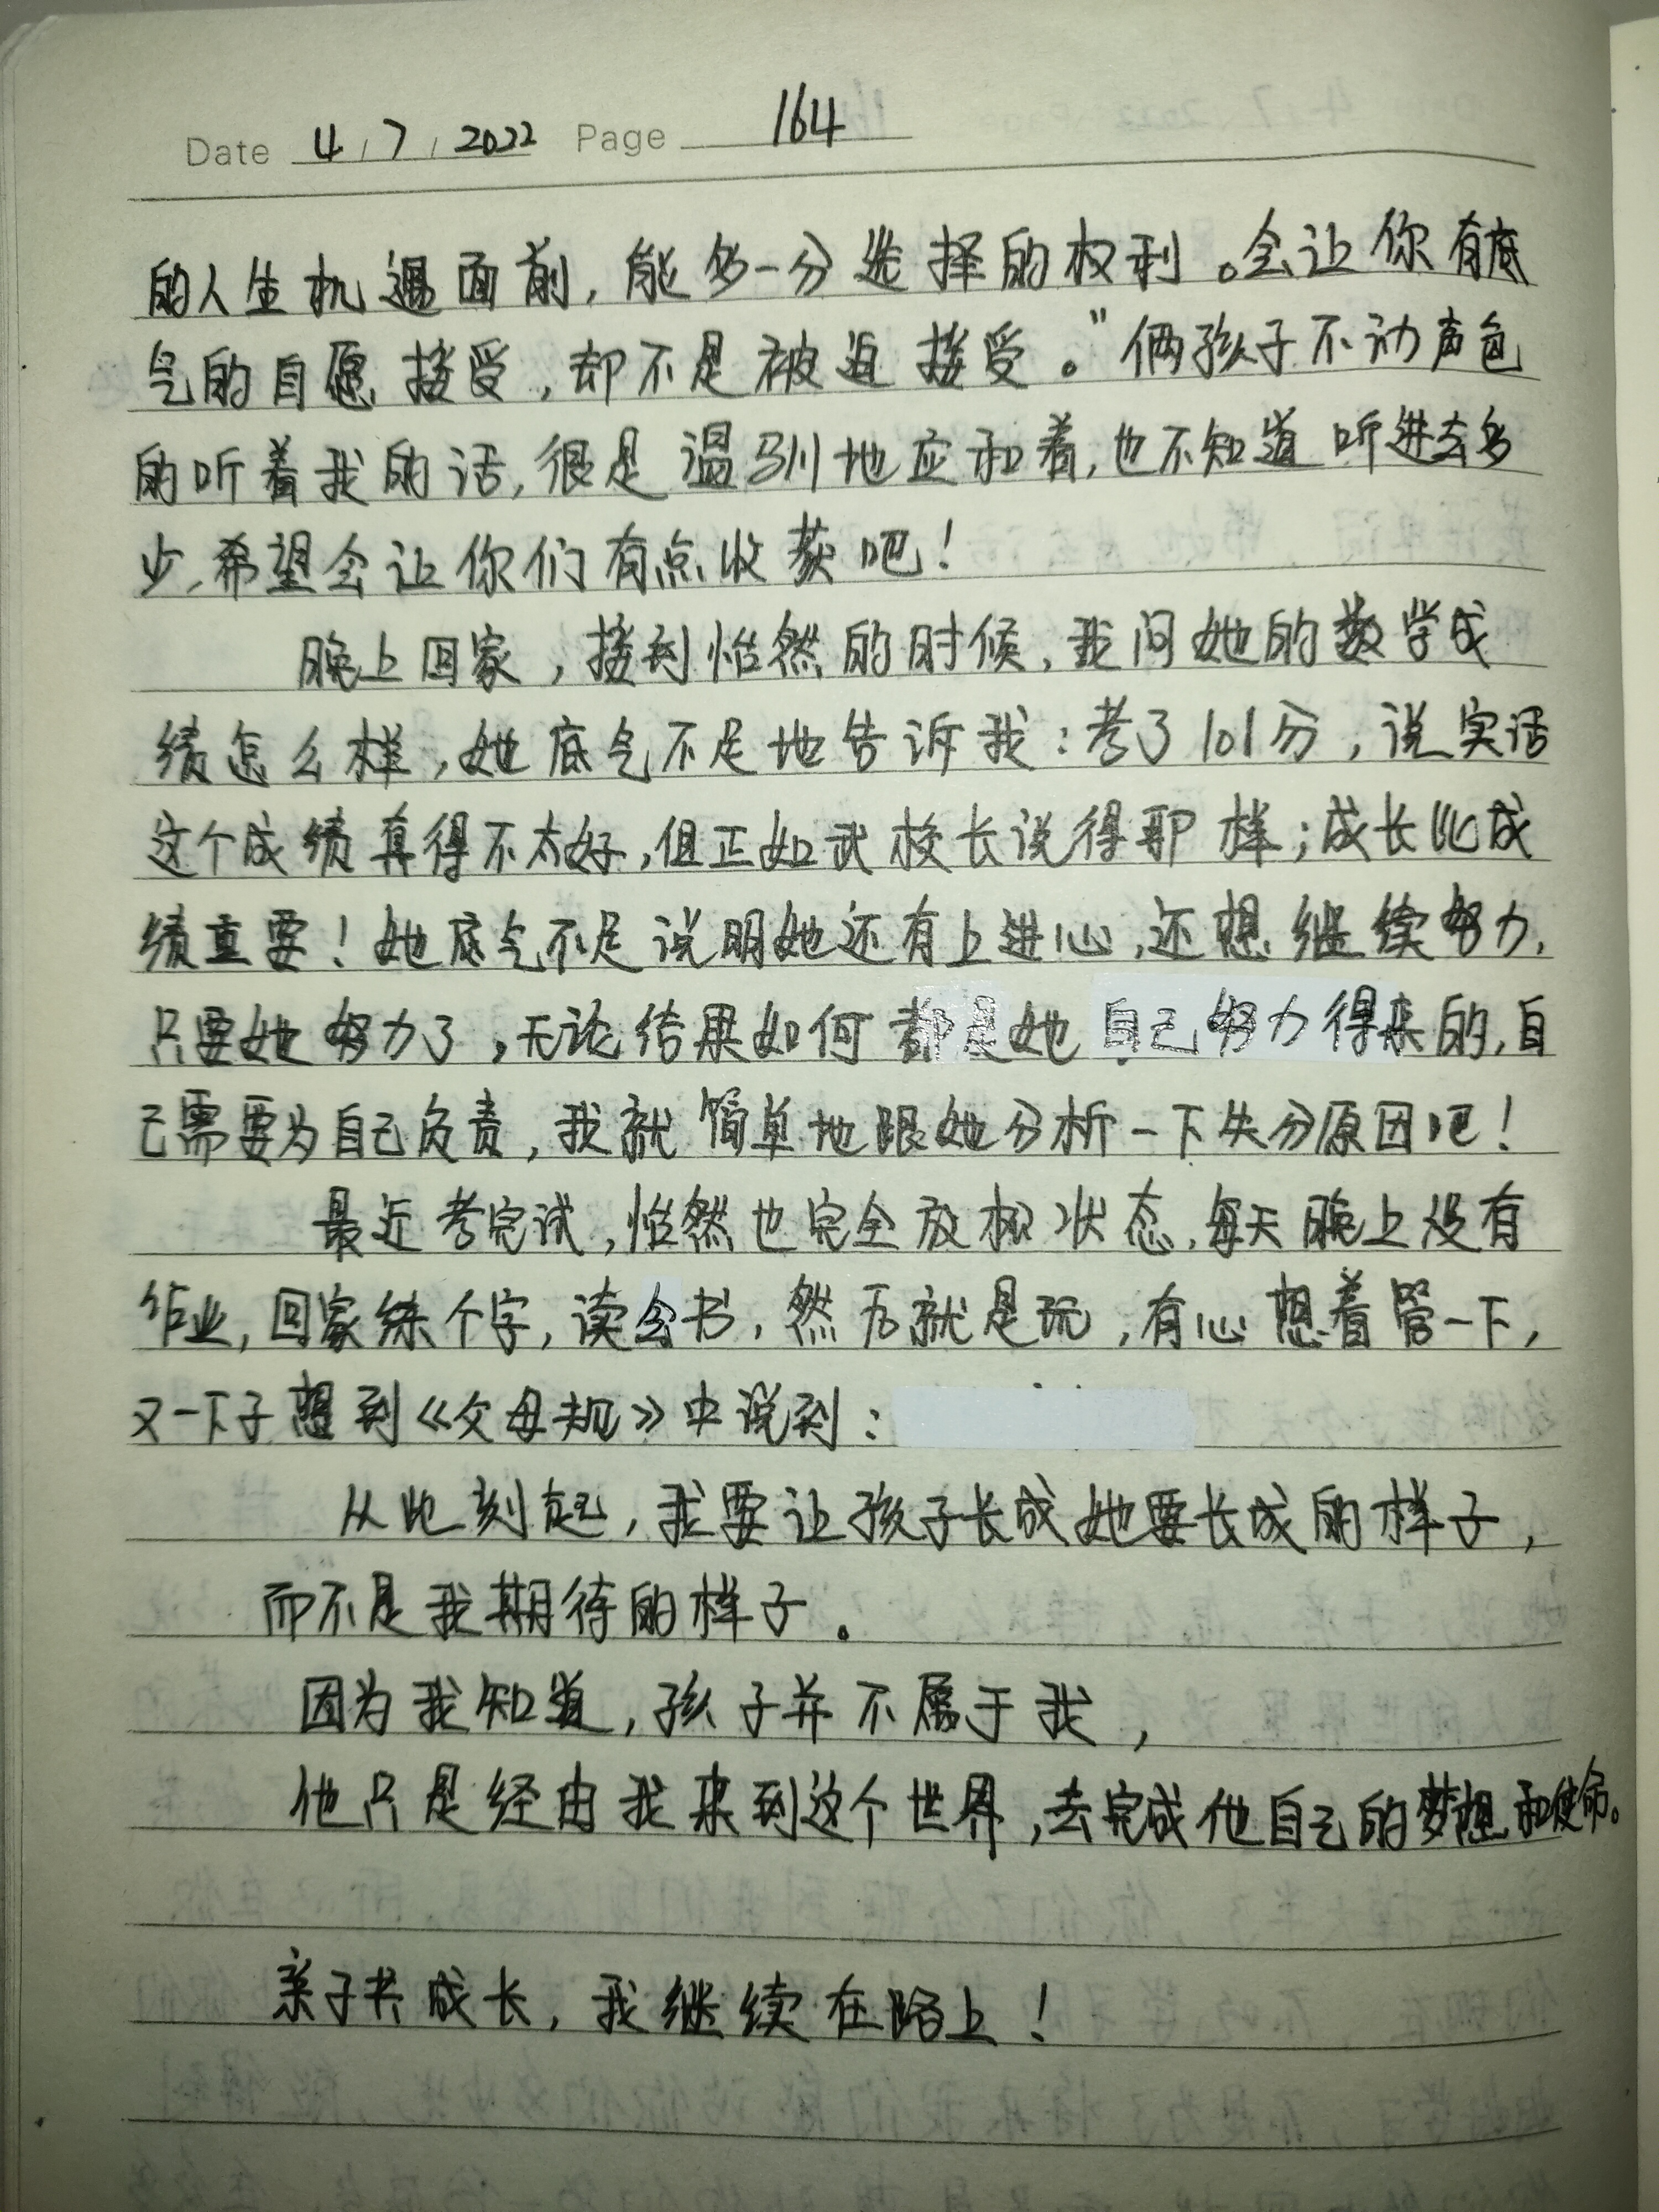 Date 4 / 7 / 2022 Page 164
的人生机遇面前，能多一分选择的权利。会让你有底
气的自愿接受，却不是被迫接受。”俩孩子不动声色
的听着我的话，很是温驯地应和着，也不知道听进去多
少，希望会让你们有点收获吧！
晚上回家，接到怡然的时候，我问她的数学成
绩怎么样，她底气不足地告诉我：考了101分，说实话
这个成绩真得不太好，但正如武校长说得那样；成长比成
绩重要！她底气不足说明她还有上进心，还想继续努力，
只要她努力了，无论结果如何都是她自己努力得来的，自
己需要为自己负责，我就简单地跟她分析一下失分原因吧！
最近考完试，怡然也完全放松状态，每天晚上没有
作业，回家练个字，读会书，然后就是玩，有心想着管一下，
又一下子想到《父母规》中说到：
从此刻起，我要让孩子长成她要长成的样子，
而不是我期待的样子。
因为我知道，孩子并不属于我，
他只是经由我来到这个世界，去完成他自己的梦想和使命。
亲子共成长，我继续在路上！